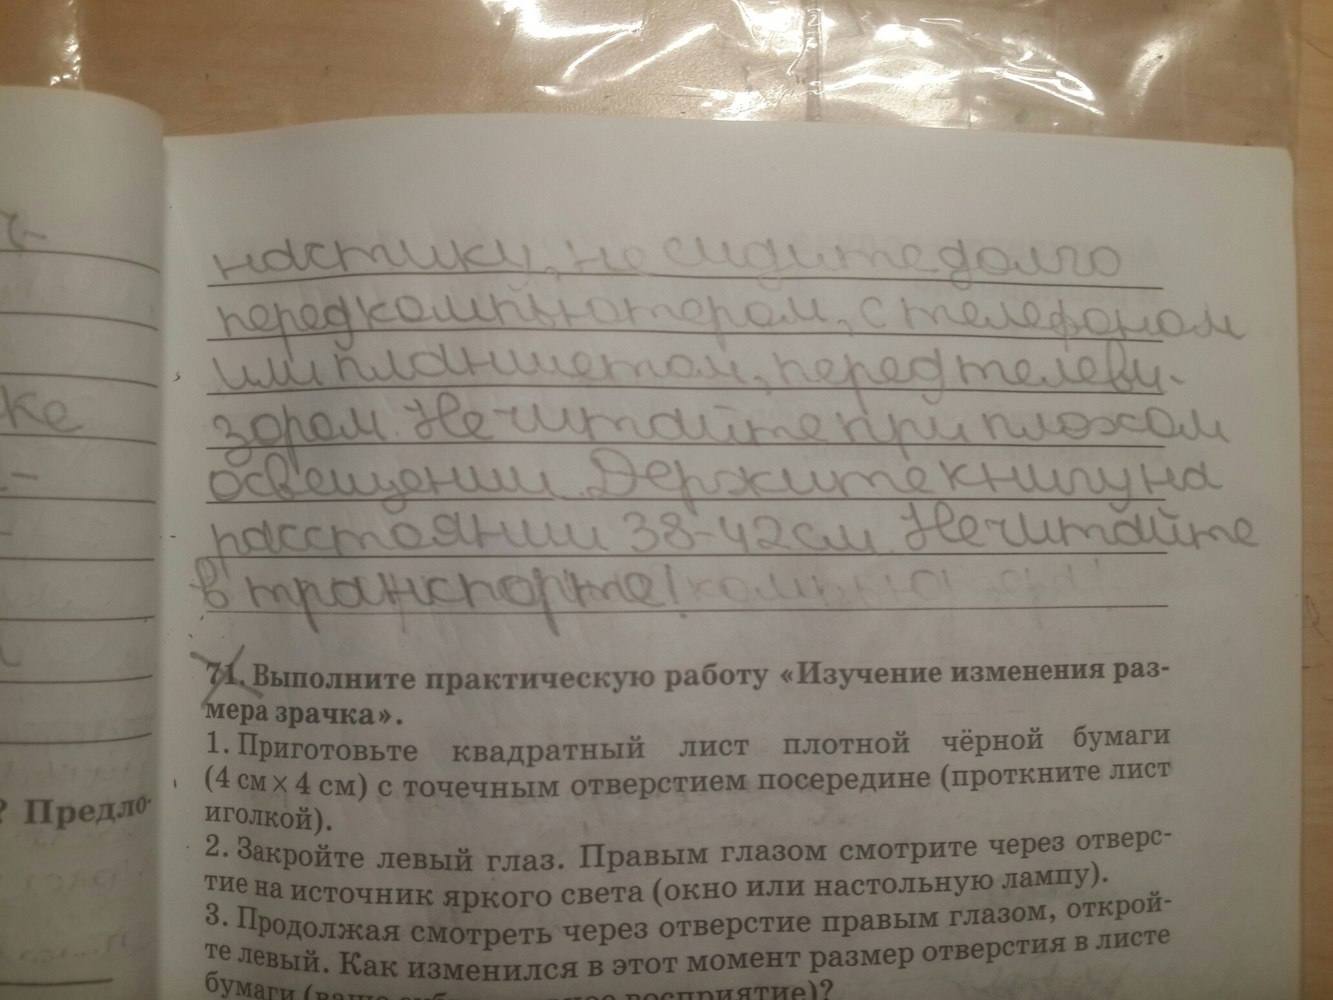 настику, не сидите долго
перед компьютером, с телефоном
или планшетом, перед телеви-
зором. Не читайте при плохом
освещении. Держите книгу на
расстоянии 38-42 см. Не читайте
в транспорте!
ке
? Предло-
71. Выполните практическую работу «Изучение изменения раз-
мера зрачка».
1. Приготовьте квадратный лист плотной чёрной бумаги
(4 см × 4 см) с точечным отверстием посередине (проткните лист
иголкой).
2. Закройте левый глаз. Правым глазом смотрите через отверс-
тие на источник яркого света (окно или настольную лампу).
3. Продолжая смотреть через отверстие правым глазом, открой-
те левый. Как изменился в этот момент размер отверстия в листе
бумаги (ваше восприятие)?